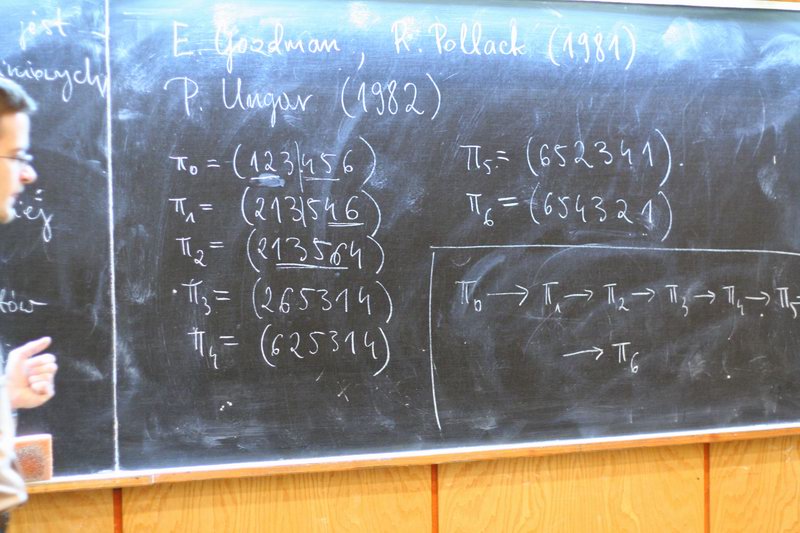 jest
E. Goodman, R. Pollack (1981)
P. Ungar (1982)
π₀ = (123|456)
π₁ = (213|546)
π₂ = (213564)
π₃ = (265314)
π₄ = (625314)
π₅ = (652341).
π₆ = (654321)
π₀ → π₁ → π₂ → π₃ → π₄ → π₅
→ π₆